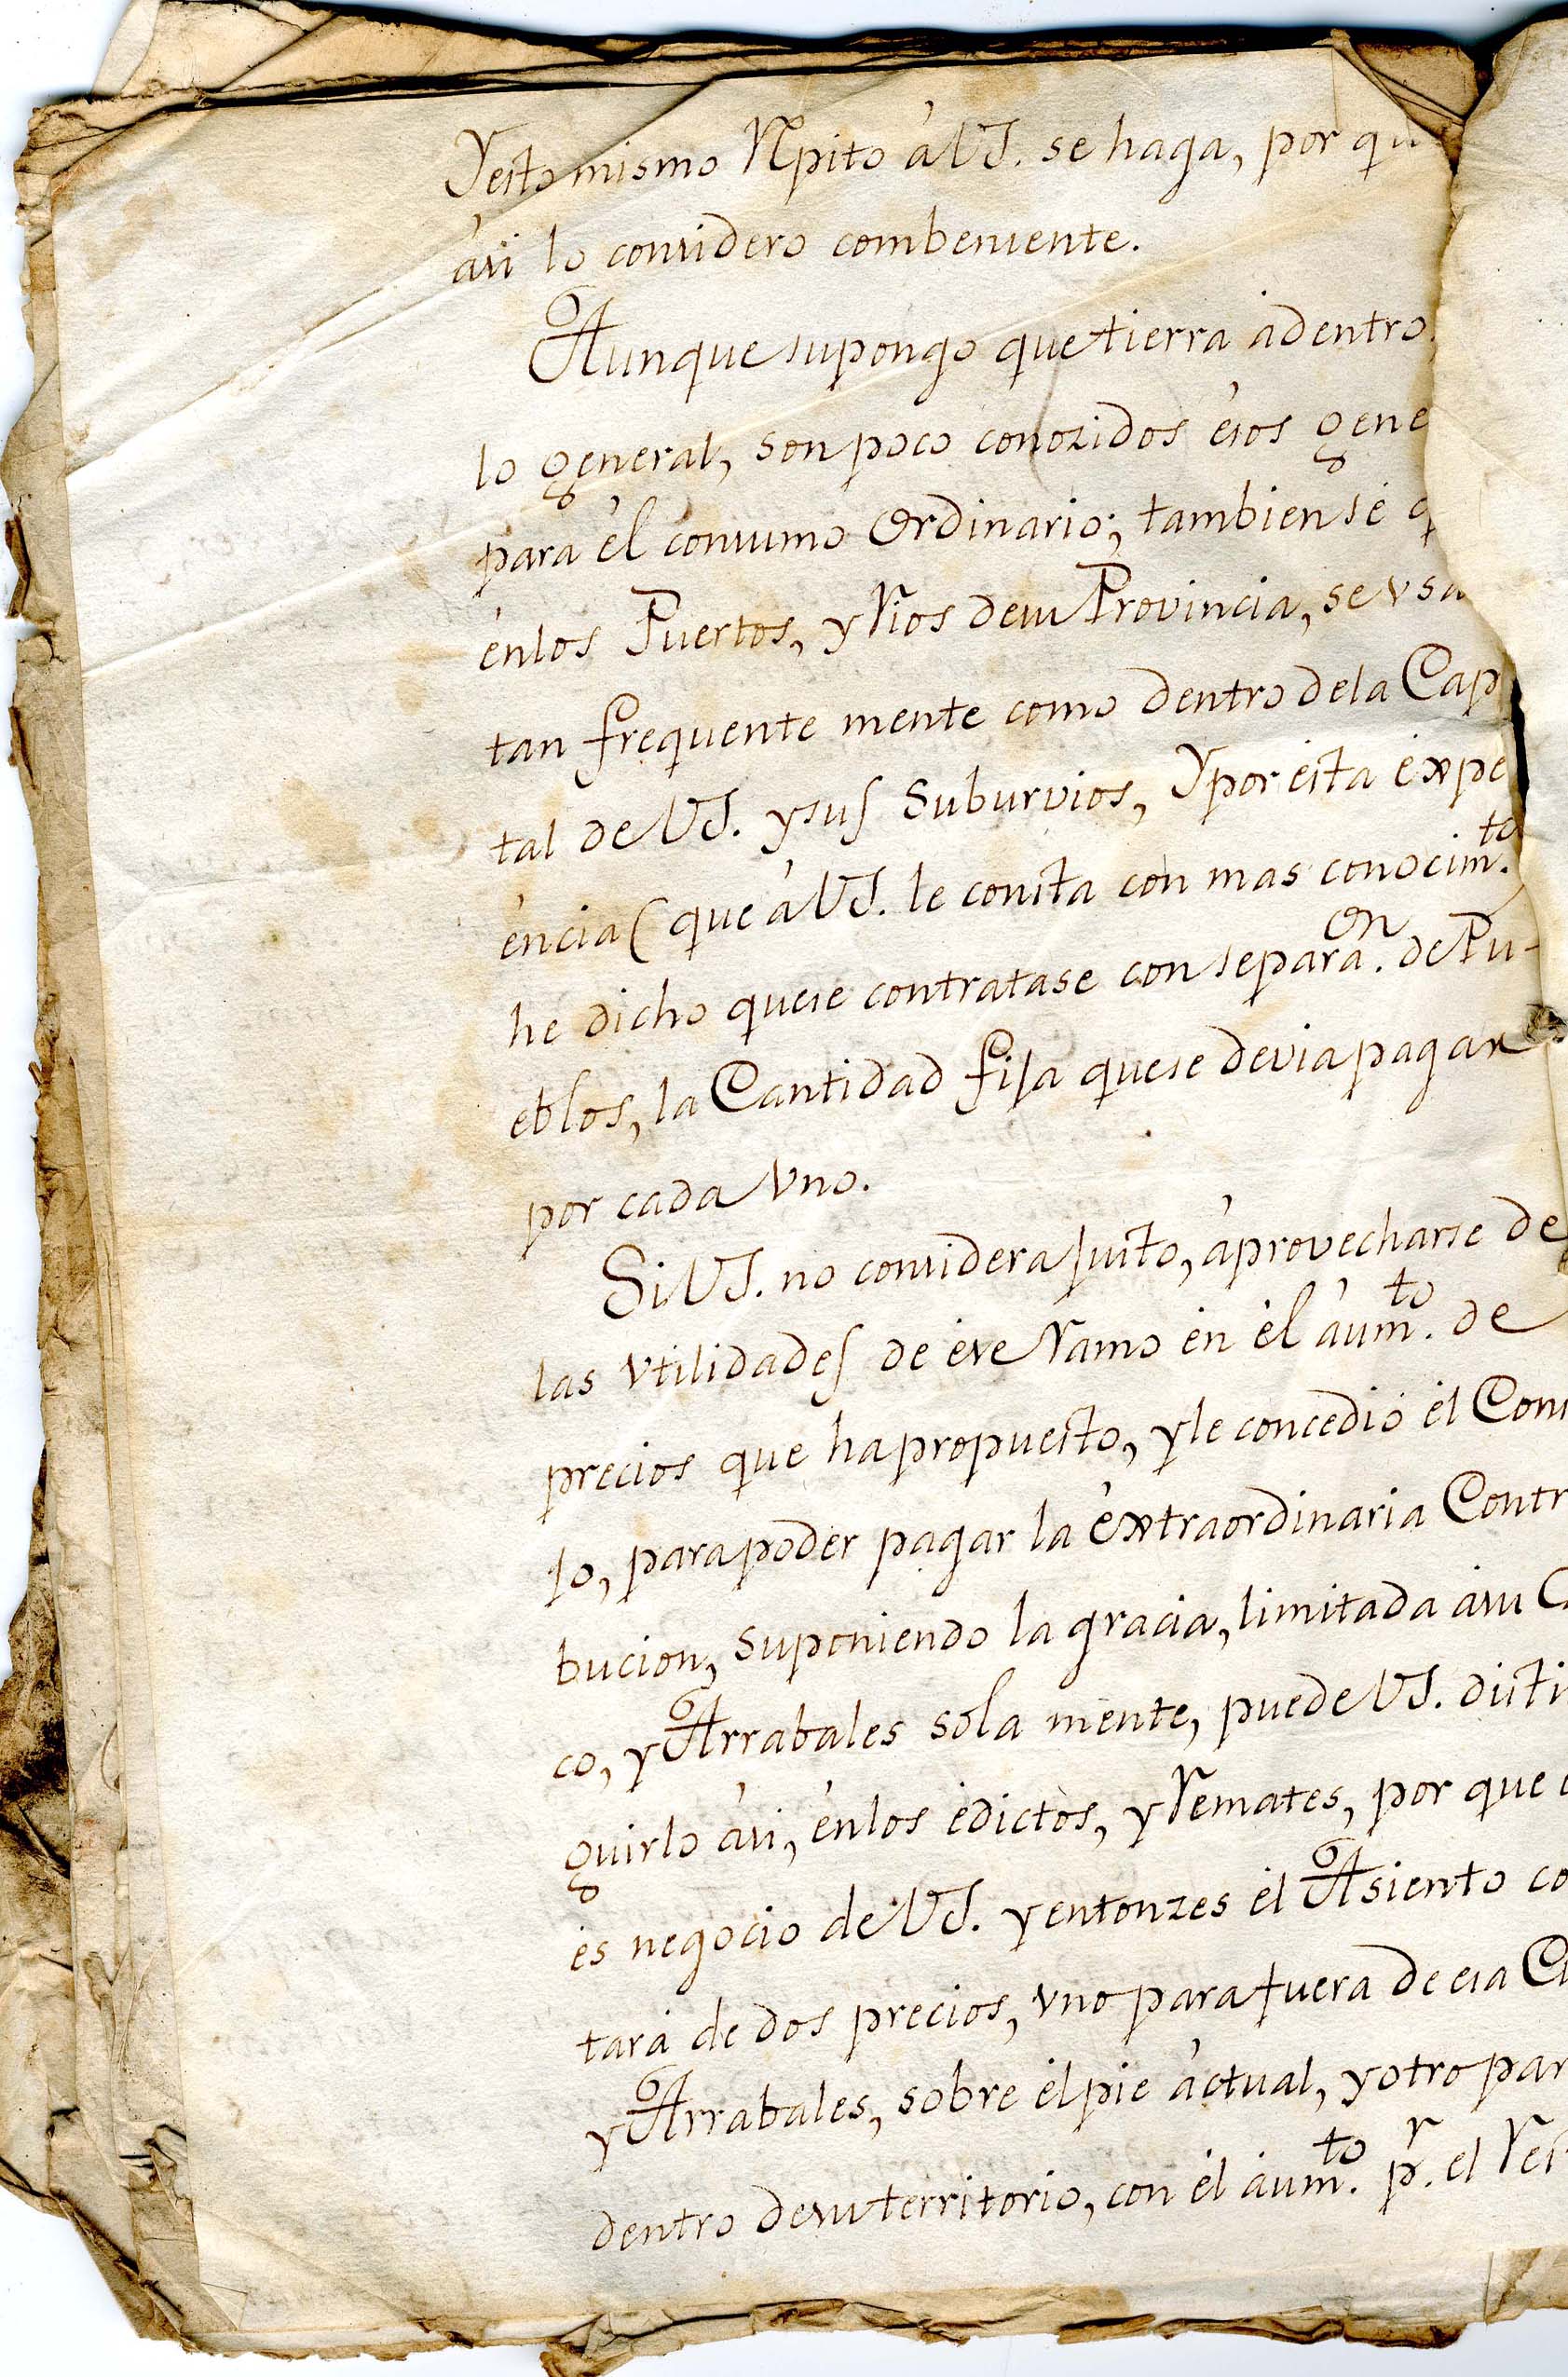 Yesto mismo Rpito â VS. se haga, por qu
ási lo considero combeniente.
Aunque supongo que tierra ádentro
lo general, son poco conozidos ésos gene
para él consumo Ordinario; tambien sé q
énlos Puertos, y Rios desu Provincia, se vsa
tan frequente mente como dentro dela Cap
tal de VS. ysus Suburvios, Y por ésta éxpe
éncia (que á VS. le consta con mas conocim.to
he dicho quese contratase con separa.on de Pu-
eblos, la Cantidad fija quese devia pagar
por cada vno.
Si VS. no considera justo, áprovecharse de
las vtilidades de ése Ramo én él áum.to de
precios que ha propuesto, y le concedió él Cons
jo, para poder pagar la éxtraordinaria Contr
bucion, suponiendo la gracia, limitada ásu C
co, y Arrabales sóla mente, puede VS. disti
guirlo ási, énlos édictos, y Remates, por que
és negocio de VS. y entonzes él Asiento co
tará de dos precios, vno para fuera de esa C
y Arrabales, sobre él pie áctual, y otro par
dentro desu territorio, con él áum.to p.r el Res